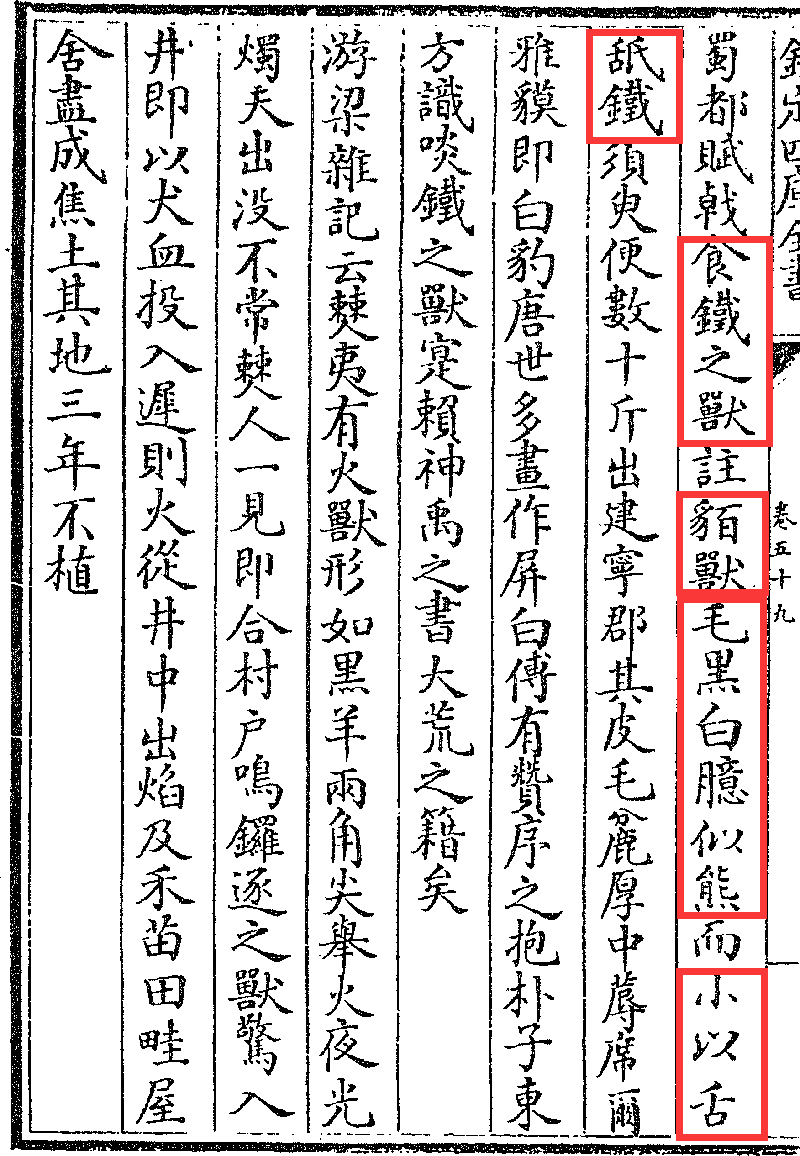 欽定四庫全書
卷五十九
蜀都賦戟食鐵之獸註貊獸毛黑白臆似熊而小以舌
舐鐵須臾便數十斤出建寧郡其皮毛麄厚中蓐席爾
雅貘即白豹唐世多畫作屏白傅有贊序之抱朴子東
方識啖鐵之獸寔賴神禹之書大荒之籍矣
游梁雜記云僰夷有火獸形如黒羊兩角尖舉火夜光
燭天出没不常僰人一見即合村户鳴鑼逐之獸驚入
井即以犬血投入遲則火從井中出焰及禾苗田畦屋
舍盡成焦土其地三年不植